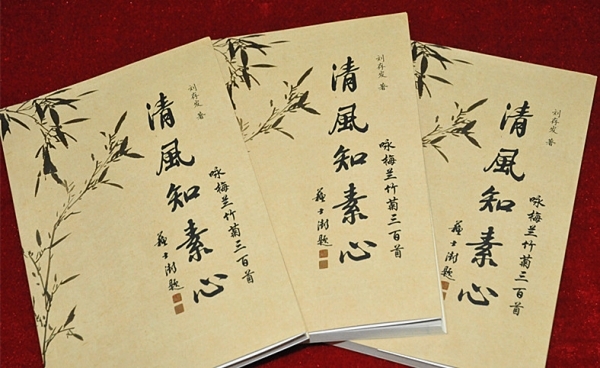 刘存发 著
清風知素心
咏梅兰竹菊三百首
蘇士澍题
刘存发 著
清風知素心
咏梅兰竹菊三百首
蘇士澍题
刘存发 著
清風知素心
咏梅兰竹菊三百首
蘇士澍题